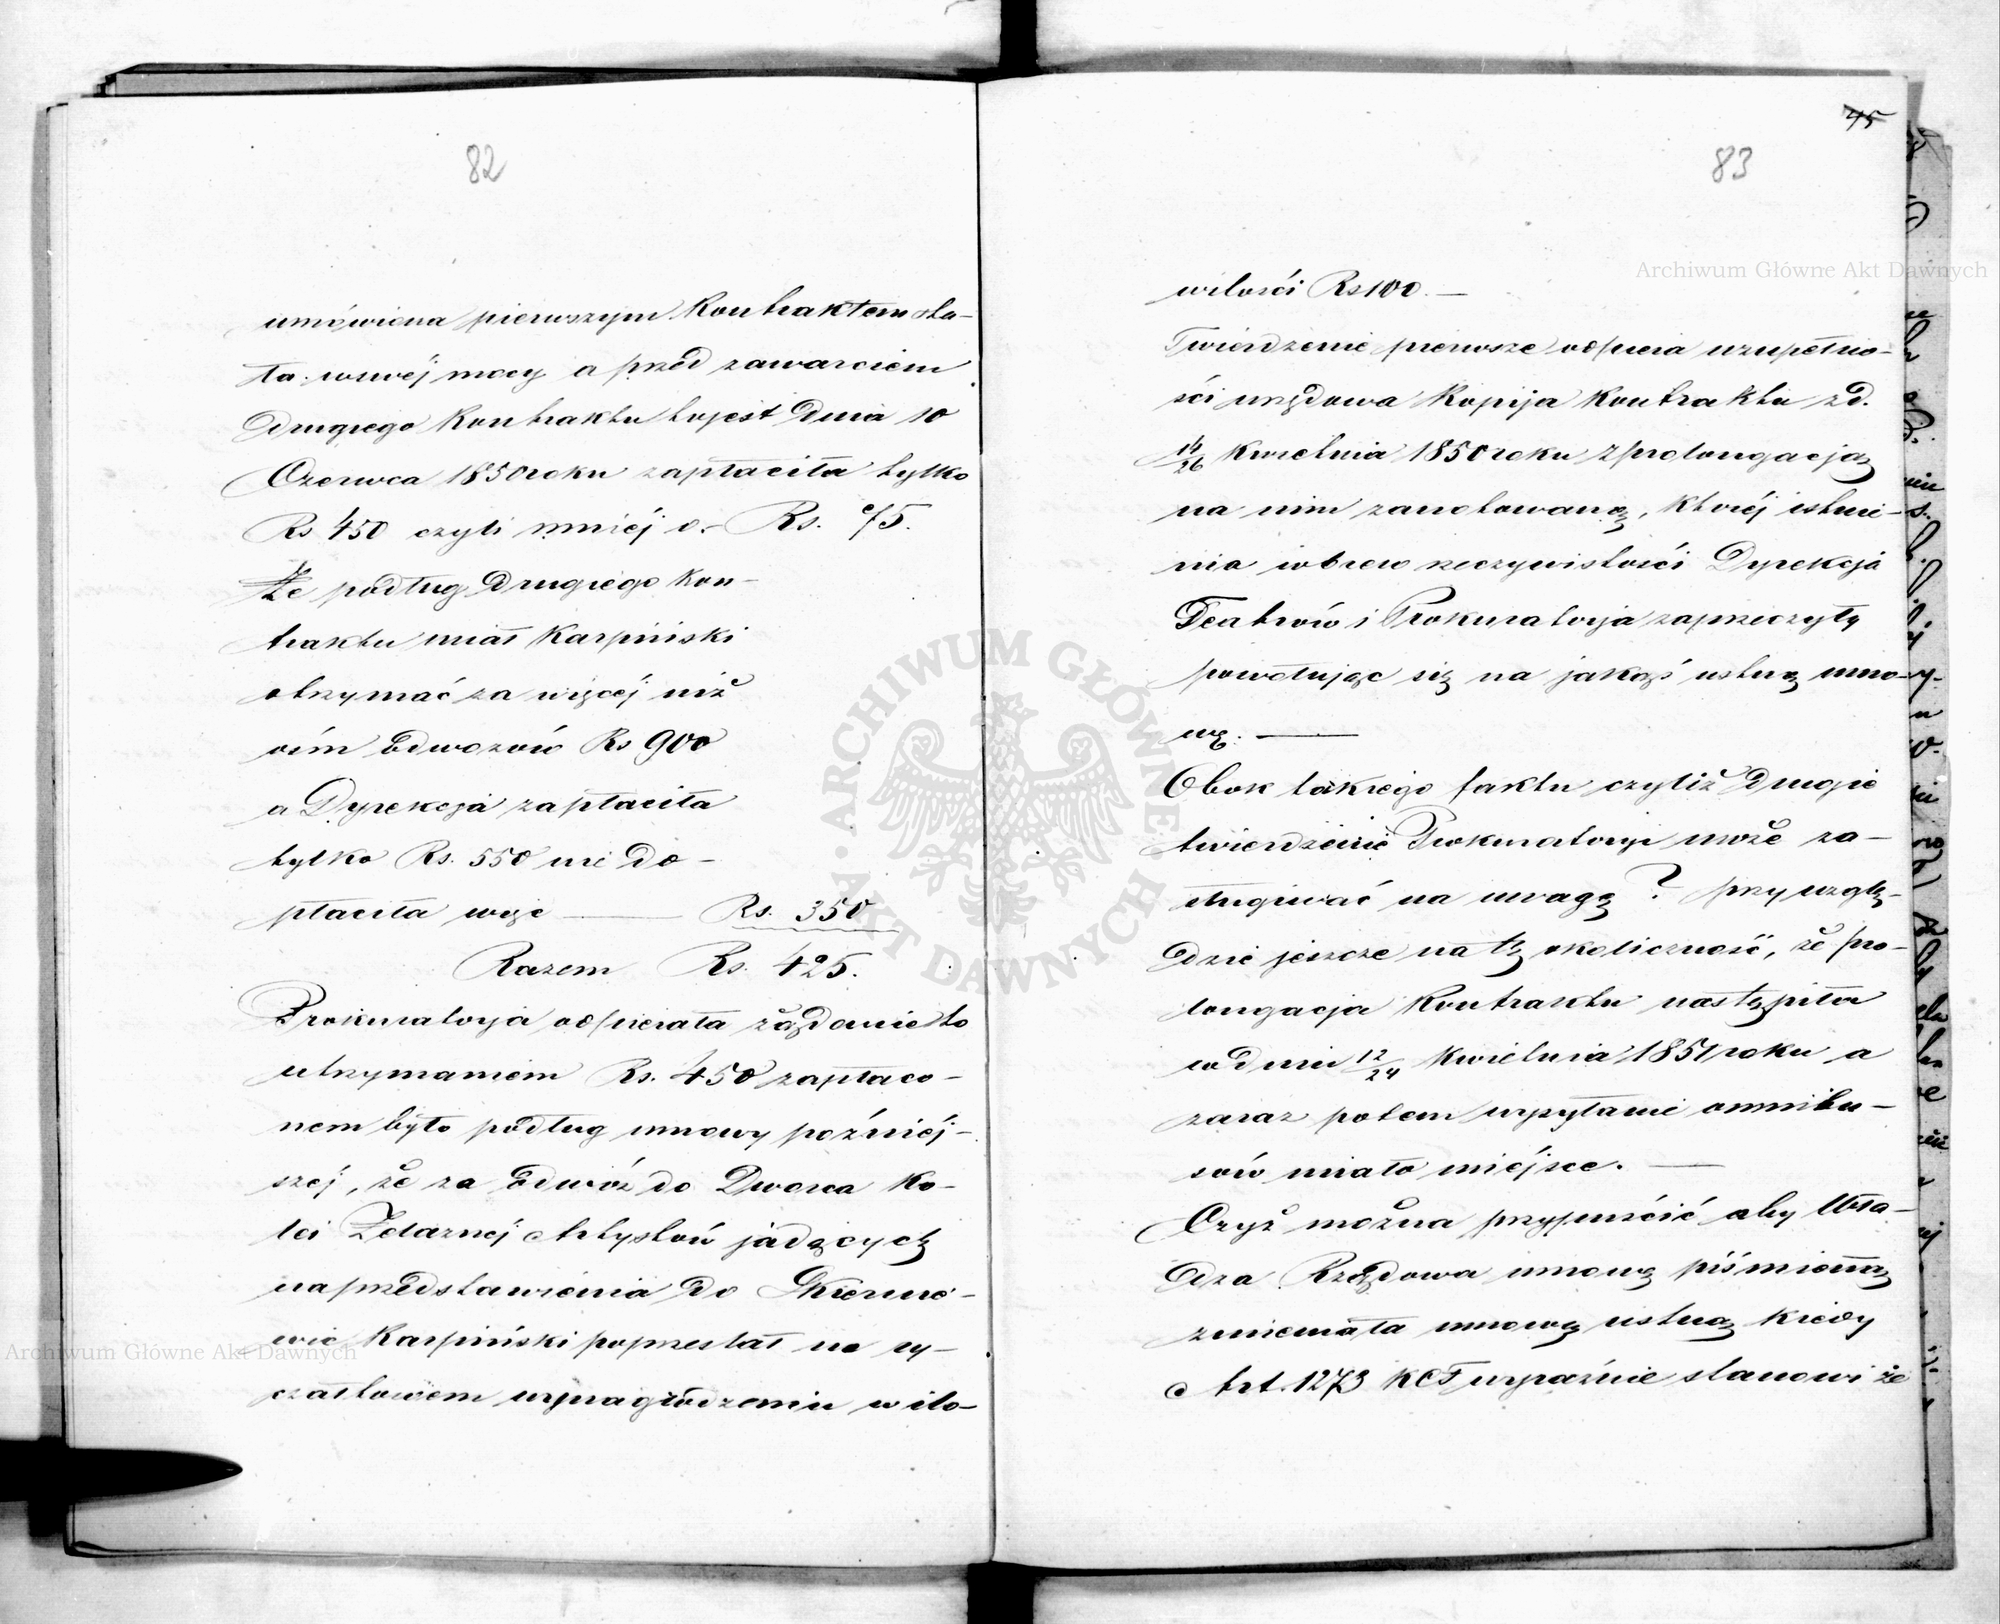 82
umówiona pierwszym Kontraktem sta-
ła wswéj mocy a przed zawarciem
drugiego Kontraktu tojest dnia 10
Czerwca 1850 roku zapłaciła tylko
Rs 450 czyli mniéj o.- Rs. 75.
Że podług drugiego kon-
traktu miał Karpiński
otrzymać za więcéj niż
ośm odwozów Rs 900
a Dyrekcja zapłaciła
tylko Rs. 550 nie do-
płaciła więc ——— Rs. 350
Razem Rs. 425.
Prokuratorja odpierała żądanie to
utrzymaniem Rs. 450 zapłaco-
nem było podług umowy poźniéj-
széj, że za odwóz do Dworca Ko-
lei Żelaznéj Artystów jadących
na przedstawienia do Skiernie-
wic Karpiński poprzestał na ry-
czałtowem wynagrodzeniu w ilo-
75
83
wilości Rs 100. —
Twierdzenie pierwsze odpiera wzupełno-
ści urzędowa Kopija Kontraktu z d.
14/26 Kwietnia 1850 roku z prolongacją
na nim zanotowaną, któréj istnie-
nia wbrew rzeczywistości Dyrekcja
Teatrów i Prokuratorja zaprzeczyły
powołując się na jakąś ustną umo-
wę. ———
Obok takiego faktu czyliż drugie
twierdzenie Prokuratorji może za-
sługiwać na uwagę? przy wzglę-
dzie jeszcze na tę okoliczność, że pro-
longacja Kontraktu nastąpiła
w dniu 12/24 Kwietnia 1851 roku a
zaraz potem użytanie omnibu-
sów miało miéjsce. ——
Czyż można przypuścić aby Wła-
dza Rządowa umowę piśmienną
zmieniała umową ustną kiedy
Art. 1273 KCF wyraźnie stanowi że
Archiwum Główne Akt Dawnych
Archiwum Główne Akt Dawnych
ARCHIWUM GŁÓWNE AKT DAWNYCH